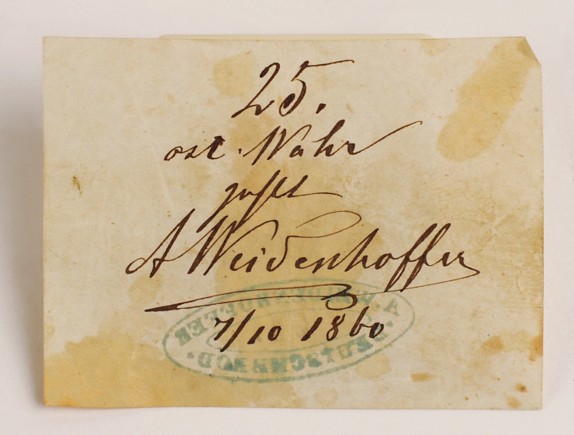 25.
ost. Wahr
zahlt
A Weidenhoffer
7/10 1860